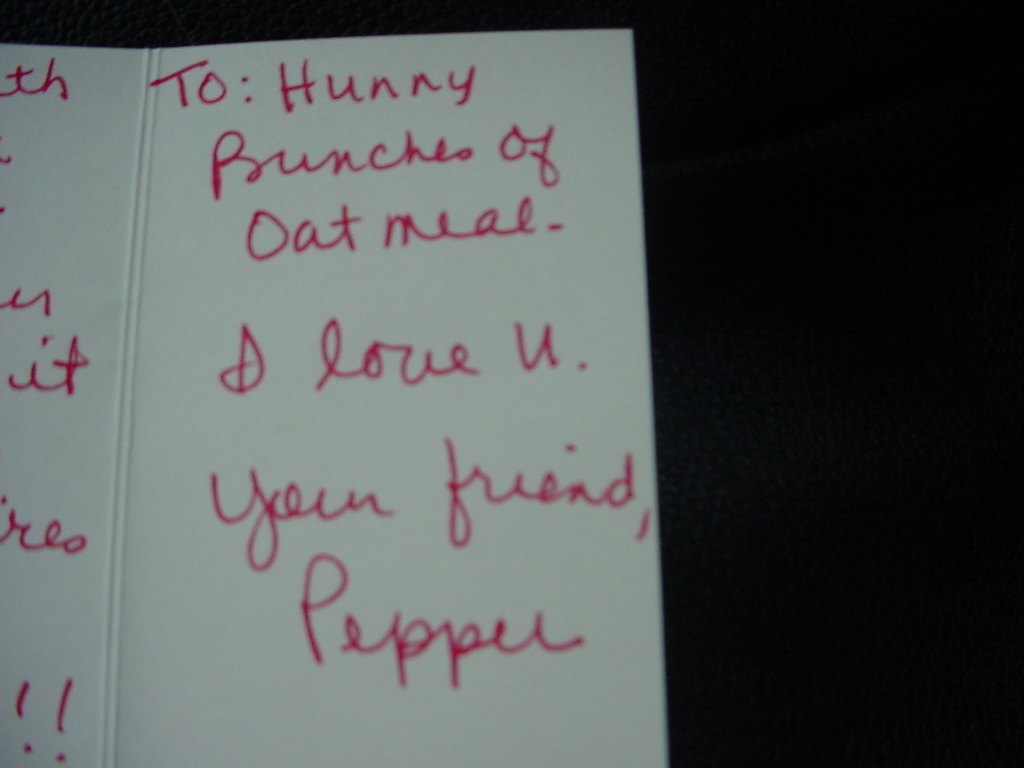 th
it
!!
To: Hunny
Bunches of
Oatmeal-
I love U.
Your friend,
Pepper